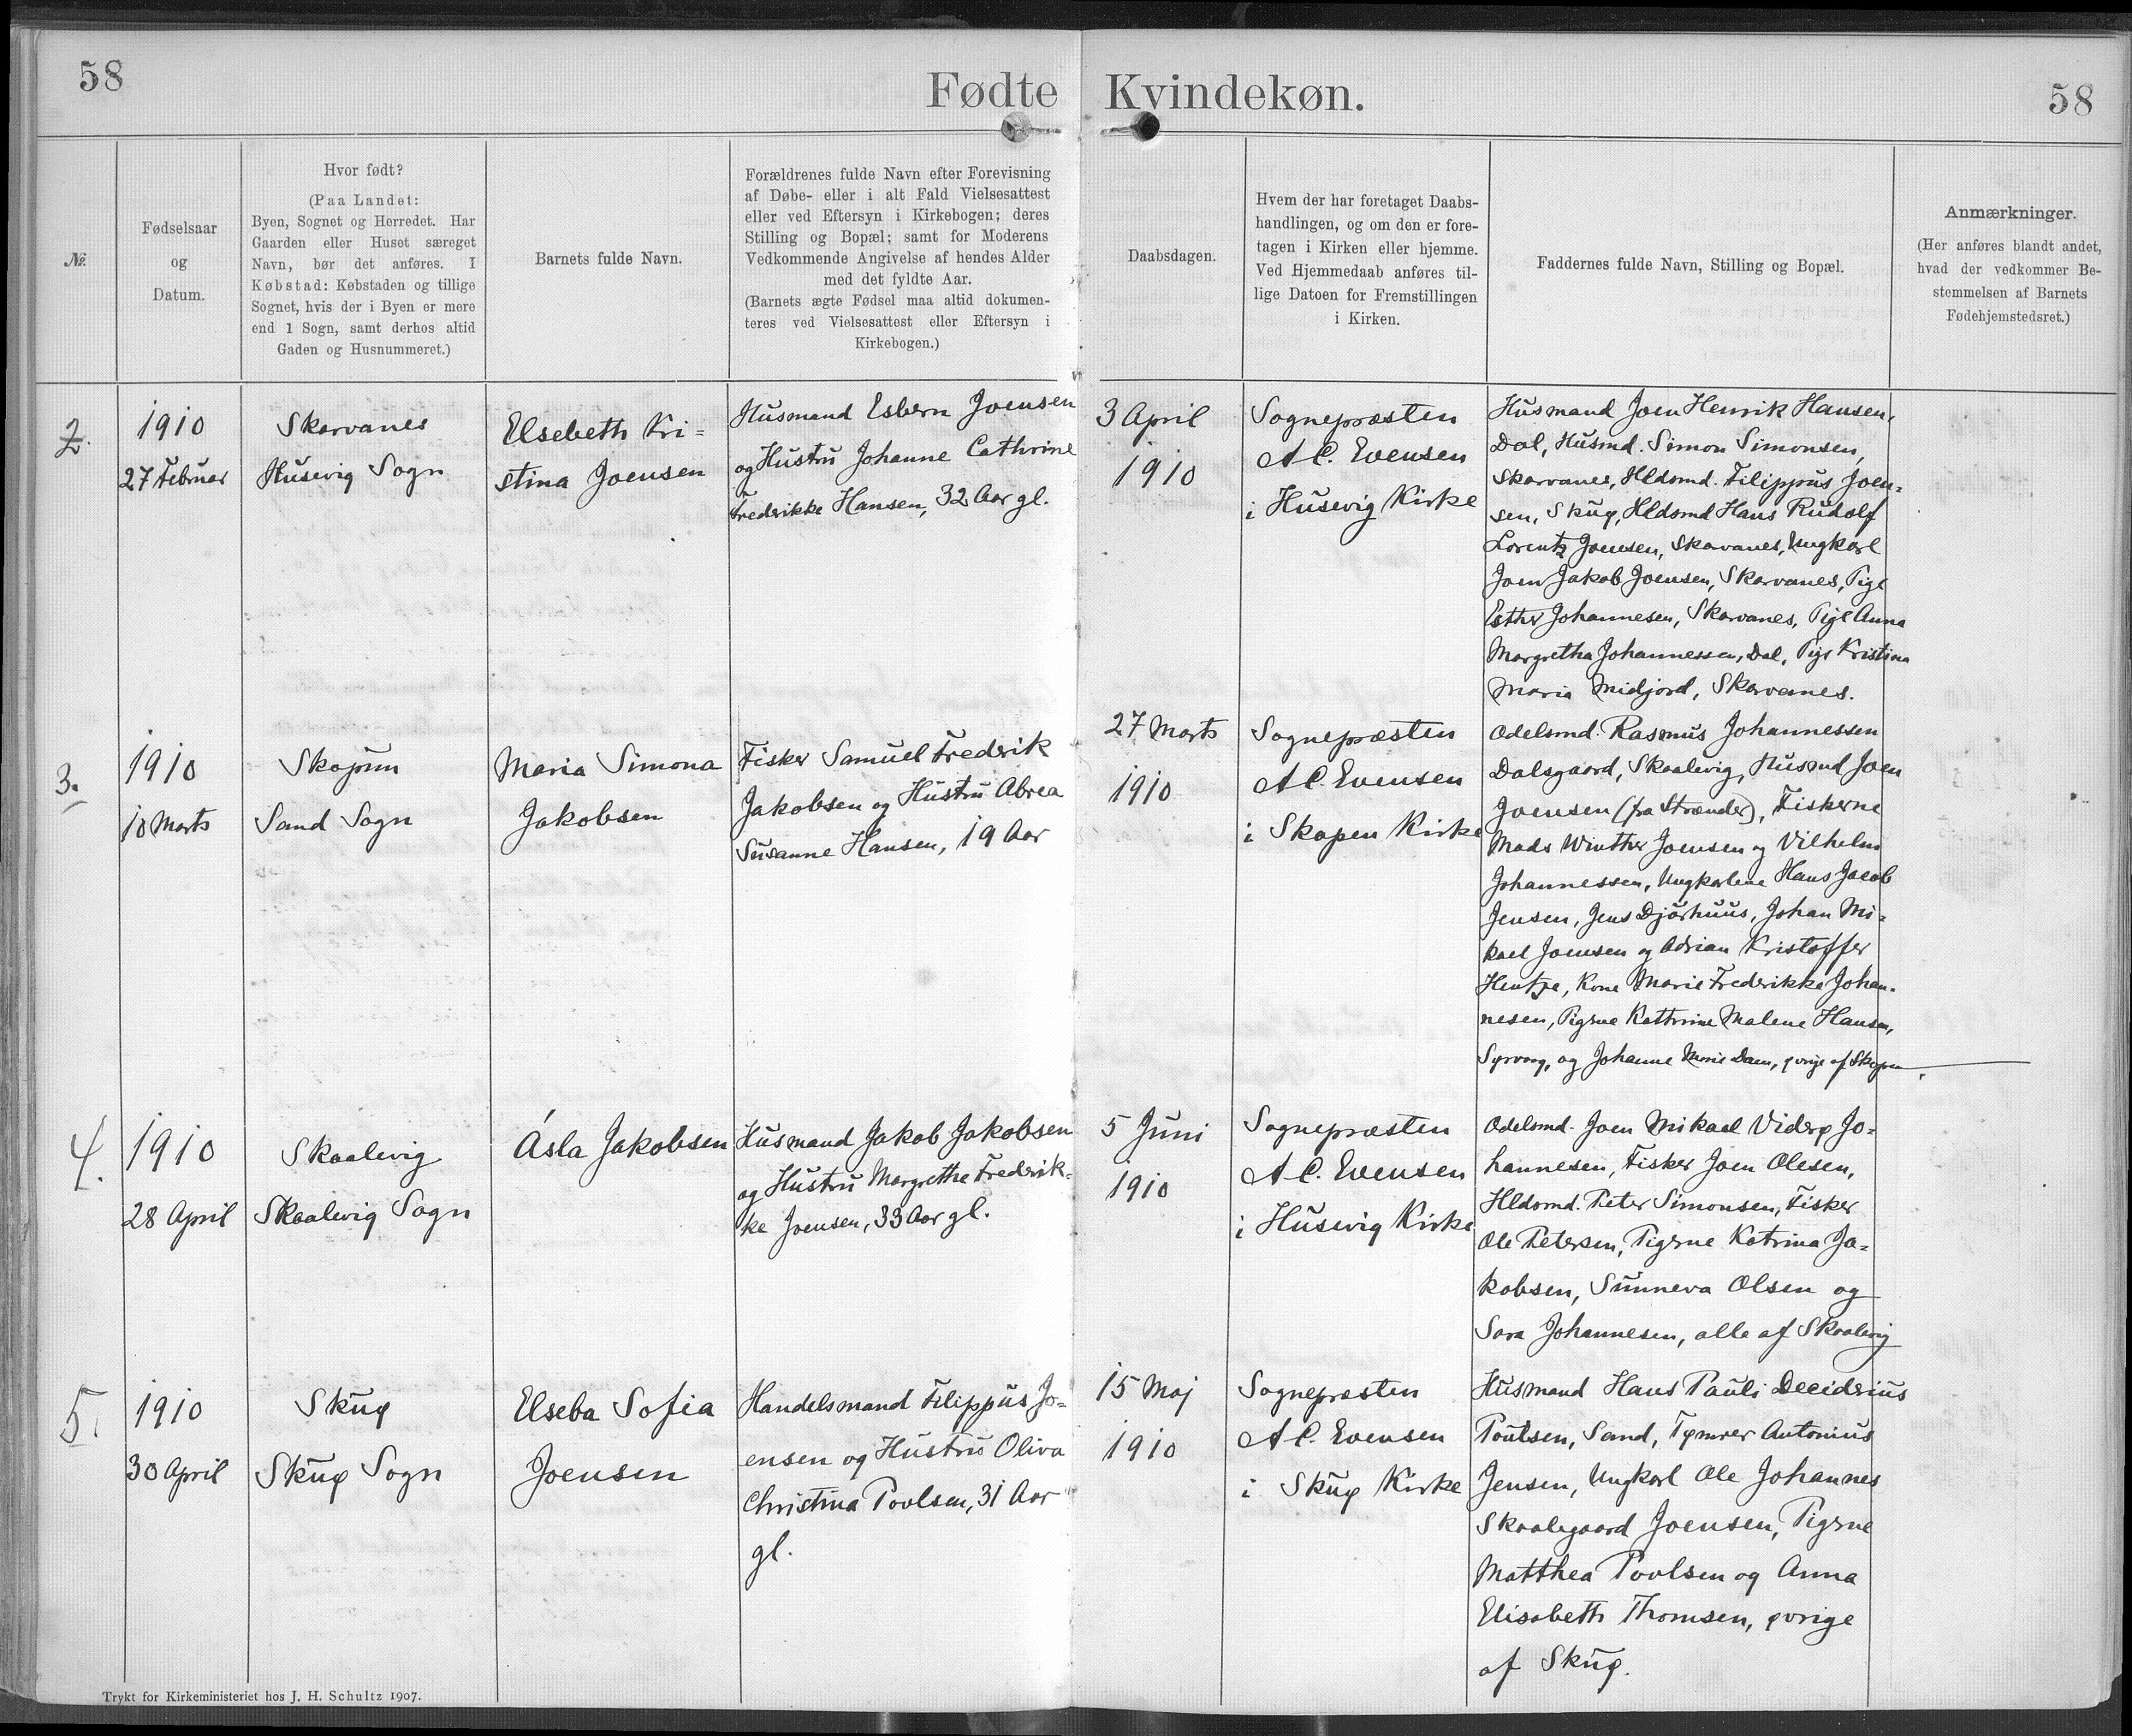 58
Fødte Kvindekøn.
58
№.
Fødselsaar
og
Datum.
Hvor født?
(Paa Landet:
Byen, Sognet og Herredet. Har
Gaarden eller Huset særeget
Navn, bør det anføres. I
Købstad: Købstaden og tillige
Sognet, hvis der i Byen er mere
end 1 Sogn, samt derhos altid
Gaden og Husnummeret.)
Barnets fulde Navn.
Forældrenes fulde Navn efter Forevisning
af Døbe- eller i alt Fald Vielsesattest
eller ved Eftersyn i Kirkebogen; deres
Stilling og Bopæl; samt for Moderens
Vedkommende Angivelse af hendes Alder
med det fyldte Aar.
(Barnets ægte Fødsel maa altid dokumen-
teres ved Vielsesattest eller Eftersyn i
Kirkebogen.)
Daabsdagen.
Hvem der har foretaget Daabs-
handlingen, og om den er fore-
tagen i Kirken eller hjemme.
Ved Hjemmedaab anføres til-
lige Datoen for Fremstillingen
i Kirken.
Faddernes fulde Navn, Stilling og Bopæl.
Anmærkninger.
(Her anføres blandt andet,
hvad der vedkommer Be-
stemmelsen af Barnets
Fødehjemstedsret.)
2.
1910
27 Februar
Skarvanes
Husevig Sogn
Elsebeth Kri=
stina Joensen
Husmand Esbern Joensen
og Hustru Johanne Cathrine
Fredrikke Hansen, 32 Aar gl.
3 April
1910
Sognepræsten
A C. Evensen
i Husevig Kirke
Husmand Joen Henrik Hansen,
Dal, Husmd. Simon Simonsen,
Skarvanes, Hldsmd. Filippus Joen=
sen, Skuø, Hldsmd Hans Rudolf
Lorentz Joensen, Skarvanes, Ungkarl
Joen Jakob Joensen, Skarvanes, Pige
Esther Johannesen, Skarvanes, Pige Anna
Margretha Johannessen, Dal, Pige Kristina
Maria Midjord, Skarvanes.
3.
1910
10 Marts
Skopun
Sand Sogn
Maria Simona
Jakobsen
Fisker Samuel Fredrik
Jakobsen og Hustru Abrea
Susanne Hansen, 19 Aar
27 Marts
1910
Sognepræsten
A C. Evensen
i Skopen Kirke
Odelsmd. Rasmus Johannessen
Dalsgaard, Skaalevig, Husmd Joen
Joensen (fra Strænder), Fiskerne
Mads Winther Joensen og Vilhelm
Johannessen, Ungkarlene Hans Jacob
Jensen, Jens Djórhuus, Johan Mi=
kael Joensen og Adrian Kristoffer
Hentze, Kone Marie Frederikke Johan-
nesen, Pigerne Kathrine Malene Hansen,
Sørvaag, og Johanne Marie Dam, øvrige af Skopen.
4.
1910
28 April
Skaalevig
Skaalevig Sogn
Ásla Jakobsen
Husmand Jakob Jakobsen
og Hustru Margrethe Fredrik=
ke Joensen, 33 Aar gl.
5 Juni
1910
Sognepræsten
A C. Evensen
i Husevig Kirke
Odelsmd. Joen Mikael Viderø Jo=
hannesen, Fisker Joen Olesen,
Hldsmd. Peter Simonsen, Fisker
Ole Petersen, Pigerne Katrina Ja=
kobsen, Sunneva Olsen og
Sara Johannesen, alle af Skaalevig
5.
1910
30 April
Skuø
Skuø Sogn
Elseba Sofia
Joensen
Handelsmand Filippus Jo=
ensen og Hustru Oliva
Christina Poulsen, 31 Aar
gl.
15 Maj
1910
Sognepræsten
A C. Evensen
i Skuø Kirke
Husmand Hans Pauli Decidrius
Poulsen, Sand, Tømrer Antonius
Jensen, Ungkarl Ole Johannes
Skaalegaard Joensen, Pigerne
Matthea Poulsen og Anna
Elisabeth Thomsen, øvrige
af Skuø.
Trykt for Kirkeministeriet hos J. H. Schultz 1907.